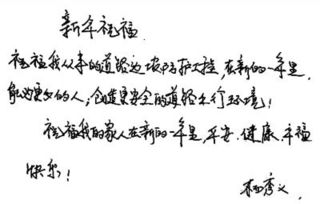 新年祝福
祝福我从事的道路边坡防护大桂,在新的一年里,
能为更多的人,创造更安全的道路出行环境!
祝福我的家人在新的一年里,平安、健康、幸福
快乐!
杨秀义